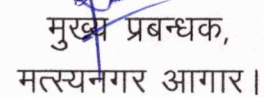 मुख्य प्रबन्धक,
मत्स्यनगर आगार।